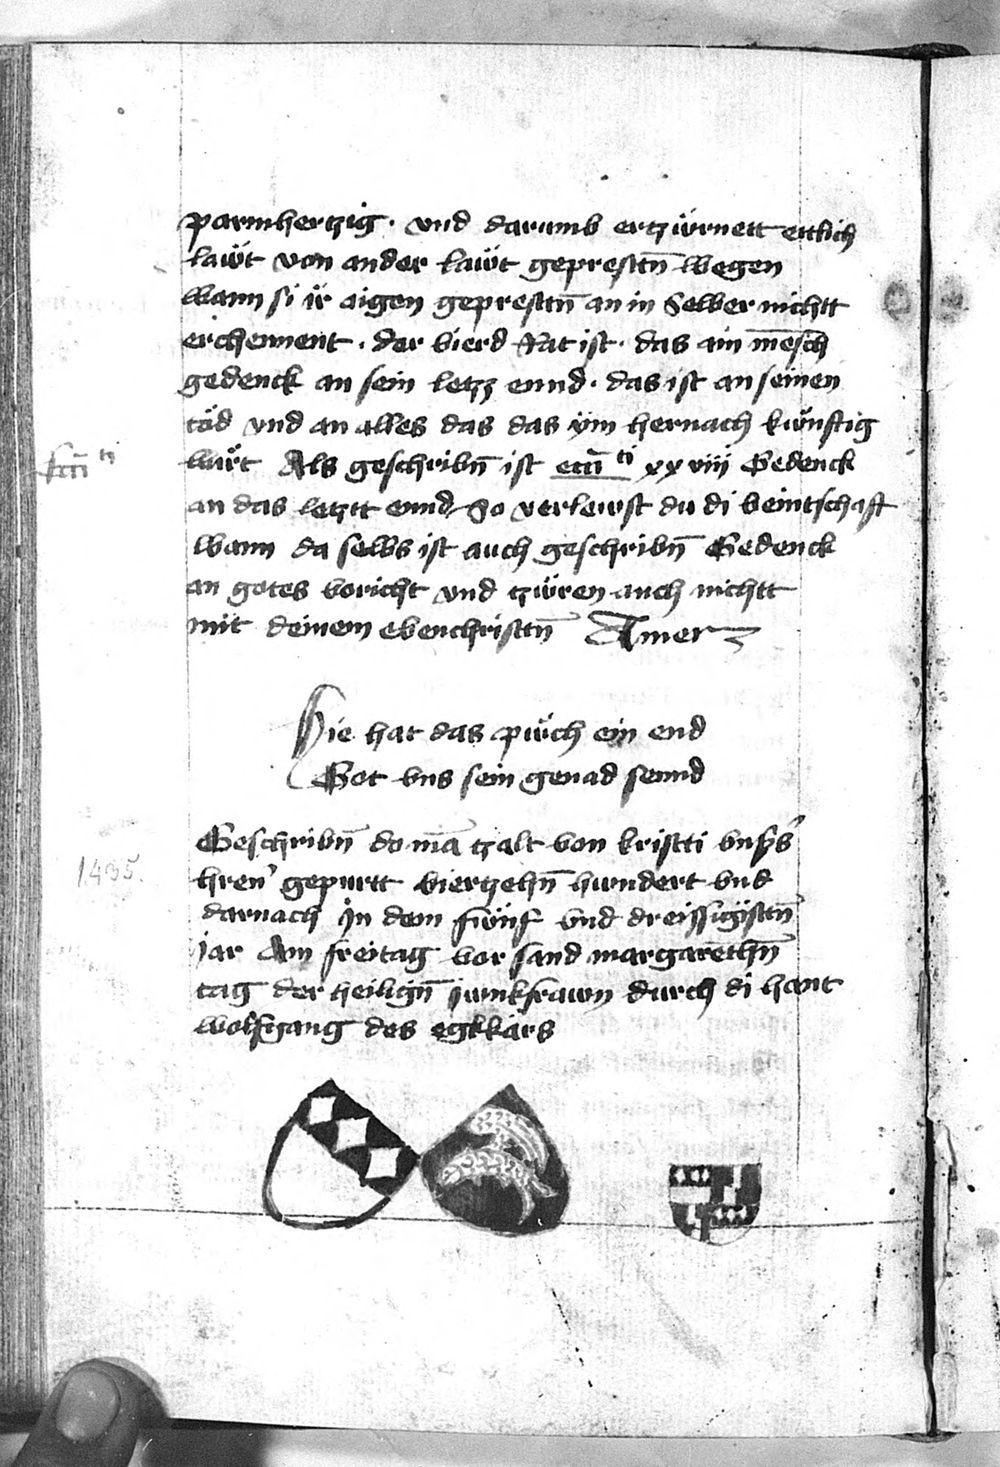 parmhertzig · vnd darumb ertzürnett ettlich
lawͤt von ander lawͤt geprestn̄ wegen
wann si ir̈ aigen geprestn̄ an in selber nichtt
erchennent · der vierd Rat ist · das ain me̅sch
gedenck an sein letzz ennd · das ist an seinen
töd vnd an alles das das ym hernach künftig
wart Als geschribn̄ ist eccͥi ti xxviii Gedenck
an das letztt ennd So verlewst du di veintschaft
wann da selbs ist auch geschribn̄ Gedenck
an gotes voricht vnd tzüren auch nichtt
mit deinem ebenchristn̄ Amen
Hie hat das püch ein end
Got vns sein genad sennd
Geschribn̄ do ma̅ tzalt von kristi vnsers
hren gepurtt viertzehn̄ hundert vnd
darnach Jn dem fünf vnd dreissigistn̄
jar Am freitag vor sand margarethn̄
tag der heilign̄ junkfrawn durch di hant
wolfgang des egkkärs
1435.